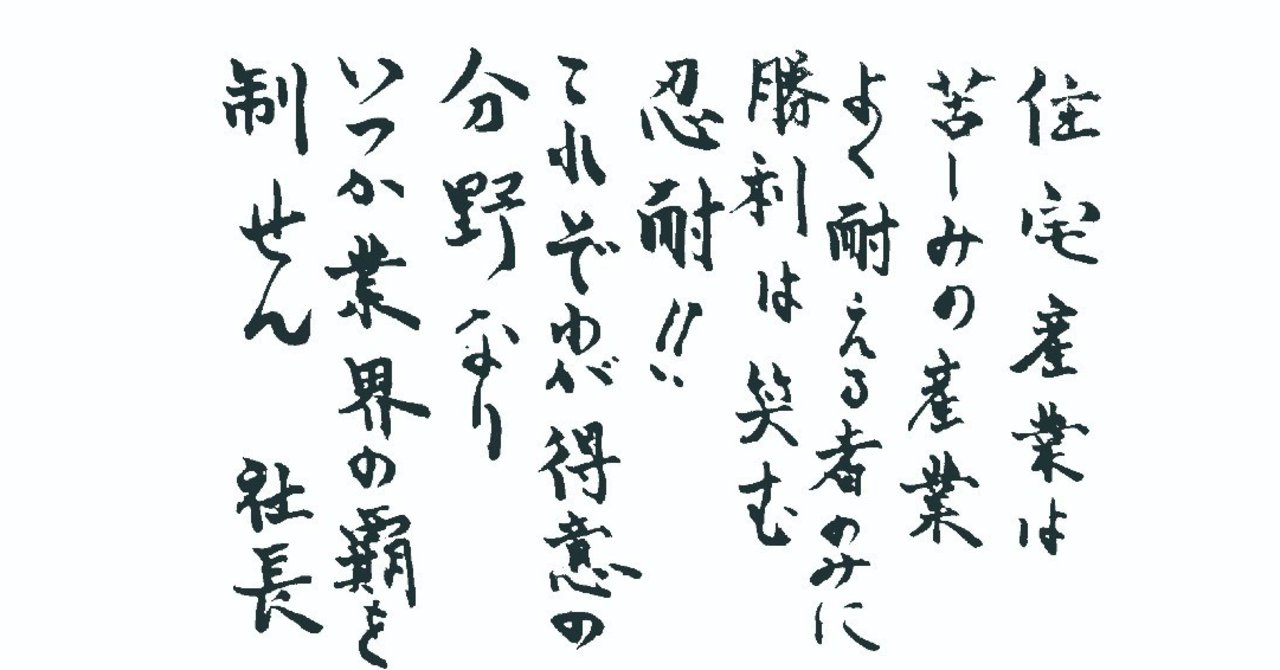 住宅産業は
苦しみの産業
よく耐える者のみに
勝利は笑む
忍耐!!
これぞわが得意の
分野なり
いつか業界の覇を
制せん 社長